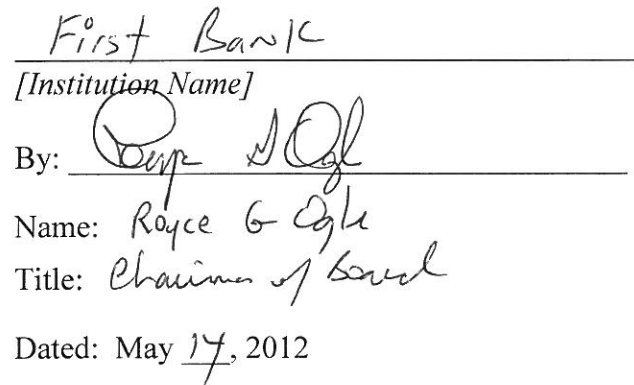 First Bank
[Institution Name]
By: Royce G Ogle
Name: Royce G Ogle
Title: Chairman of Board
Dated: May 14, 2012